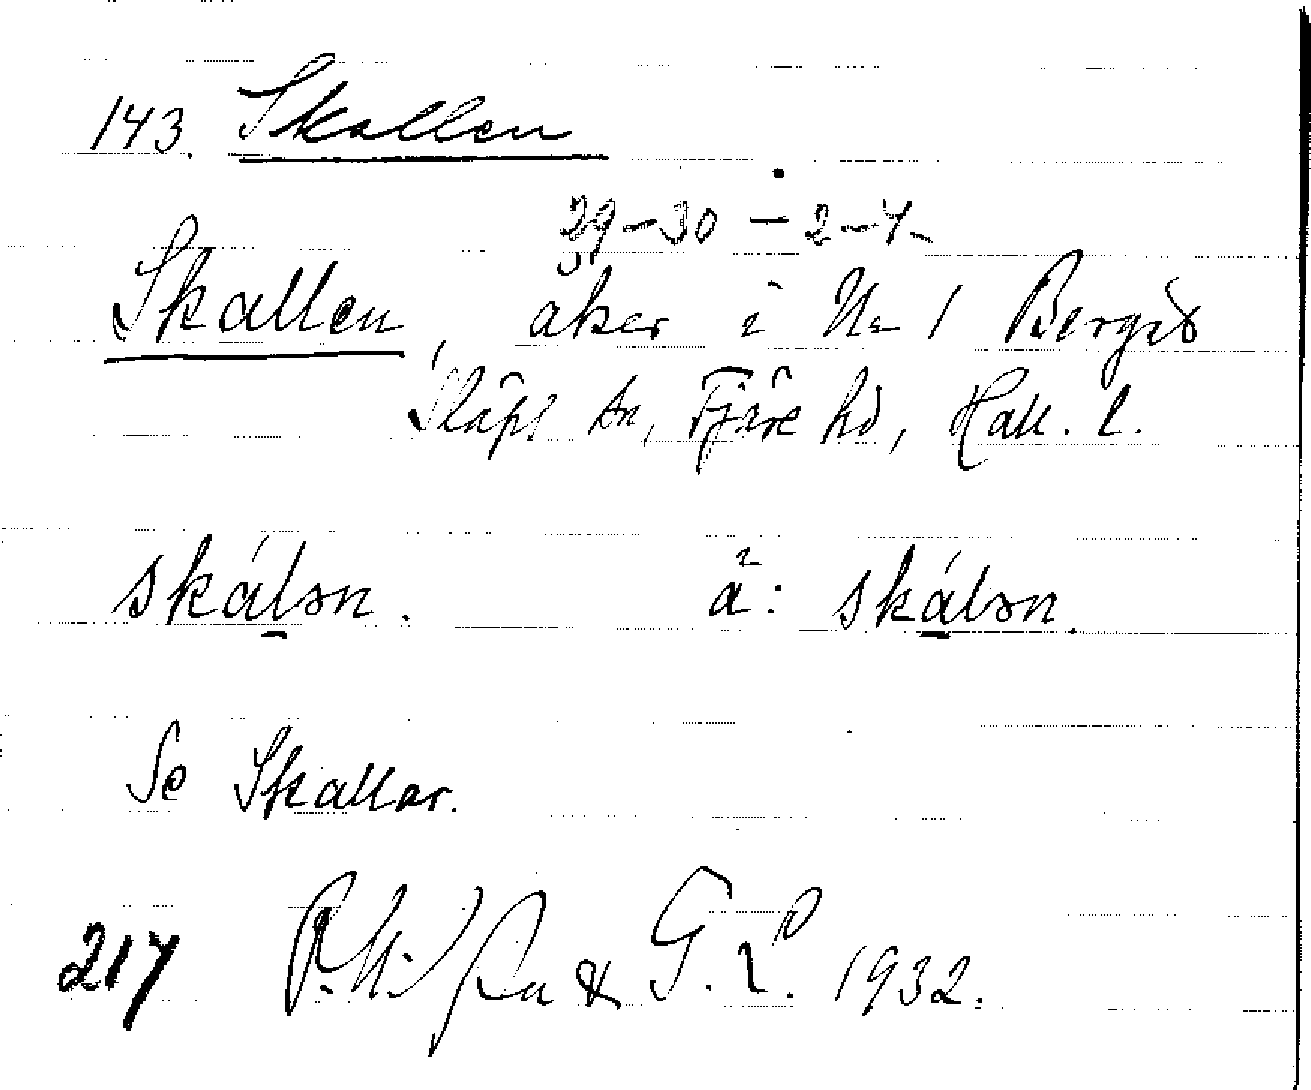 143. Skallen
29-30-2-4-
Skallen, åker i Nr 1 Berget
Släps sn, Fjäre hd, Hall. l.
skálən. ä: skálən.
Se Skallar.
217 & G. L. 1932.